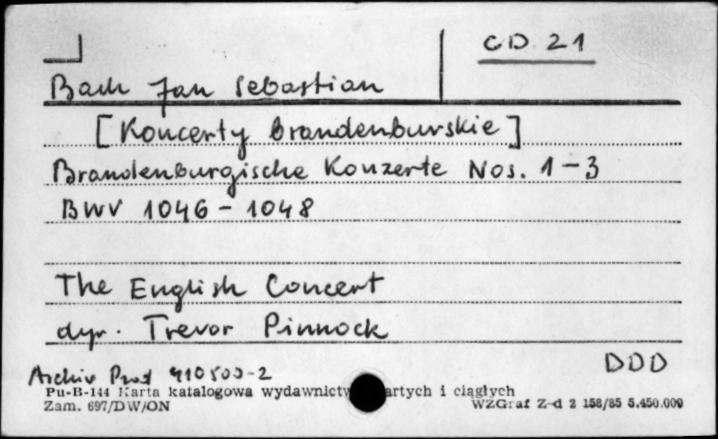 CD 21
Bach Jan Sebastian
[Koncerty brandenburskie]
Brandenburgische Konzerte Nos. 1-3
BWV 1046-1048
The English Concert
dyr. Trevor Pinnock
DDD
Archiv Prod 410500-2
Pu-B-144 Karta katalogowa wydawnictw artych i ciągłych
Zam. 697/DW/ON WZGraf Z-d 2 158/85 5.450.000